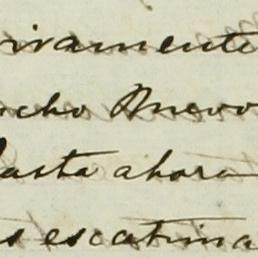 ivamente
cho Nuevo
hasta ahora
s escatima